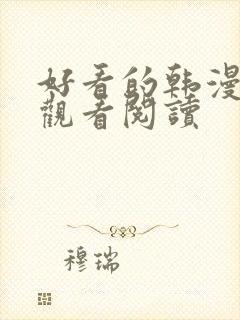 好看的韩漫
觀看閱讀
穆瑞